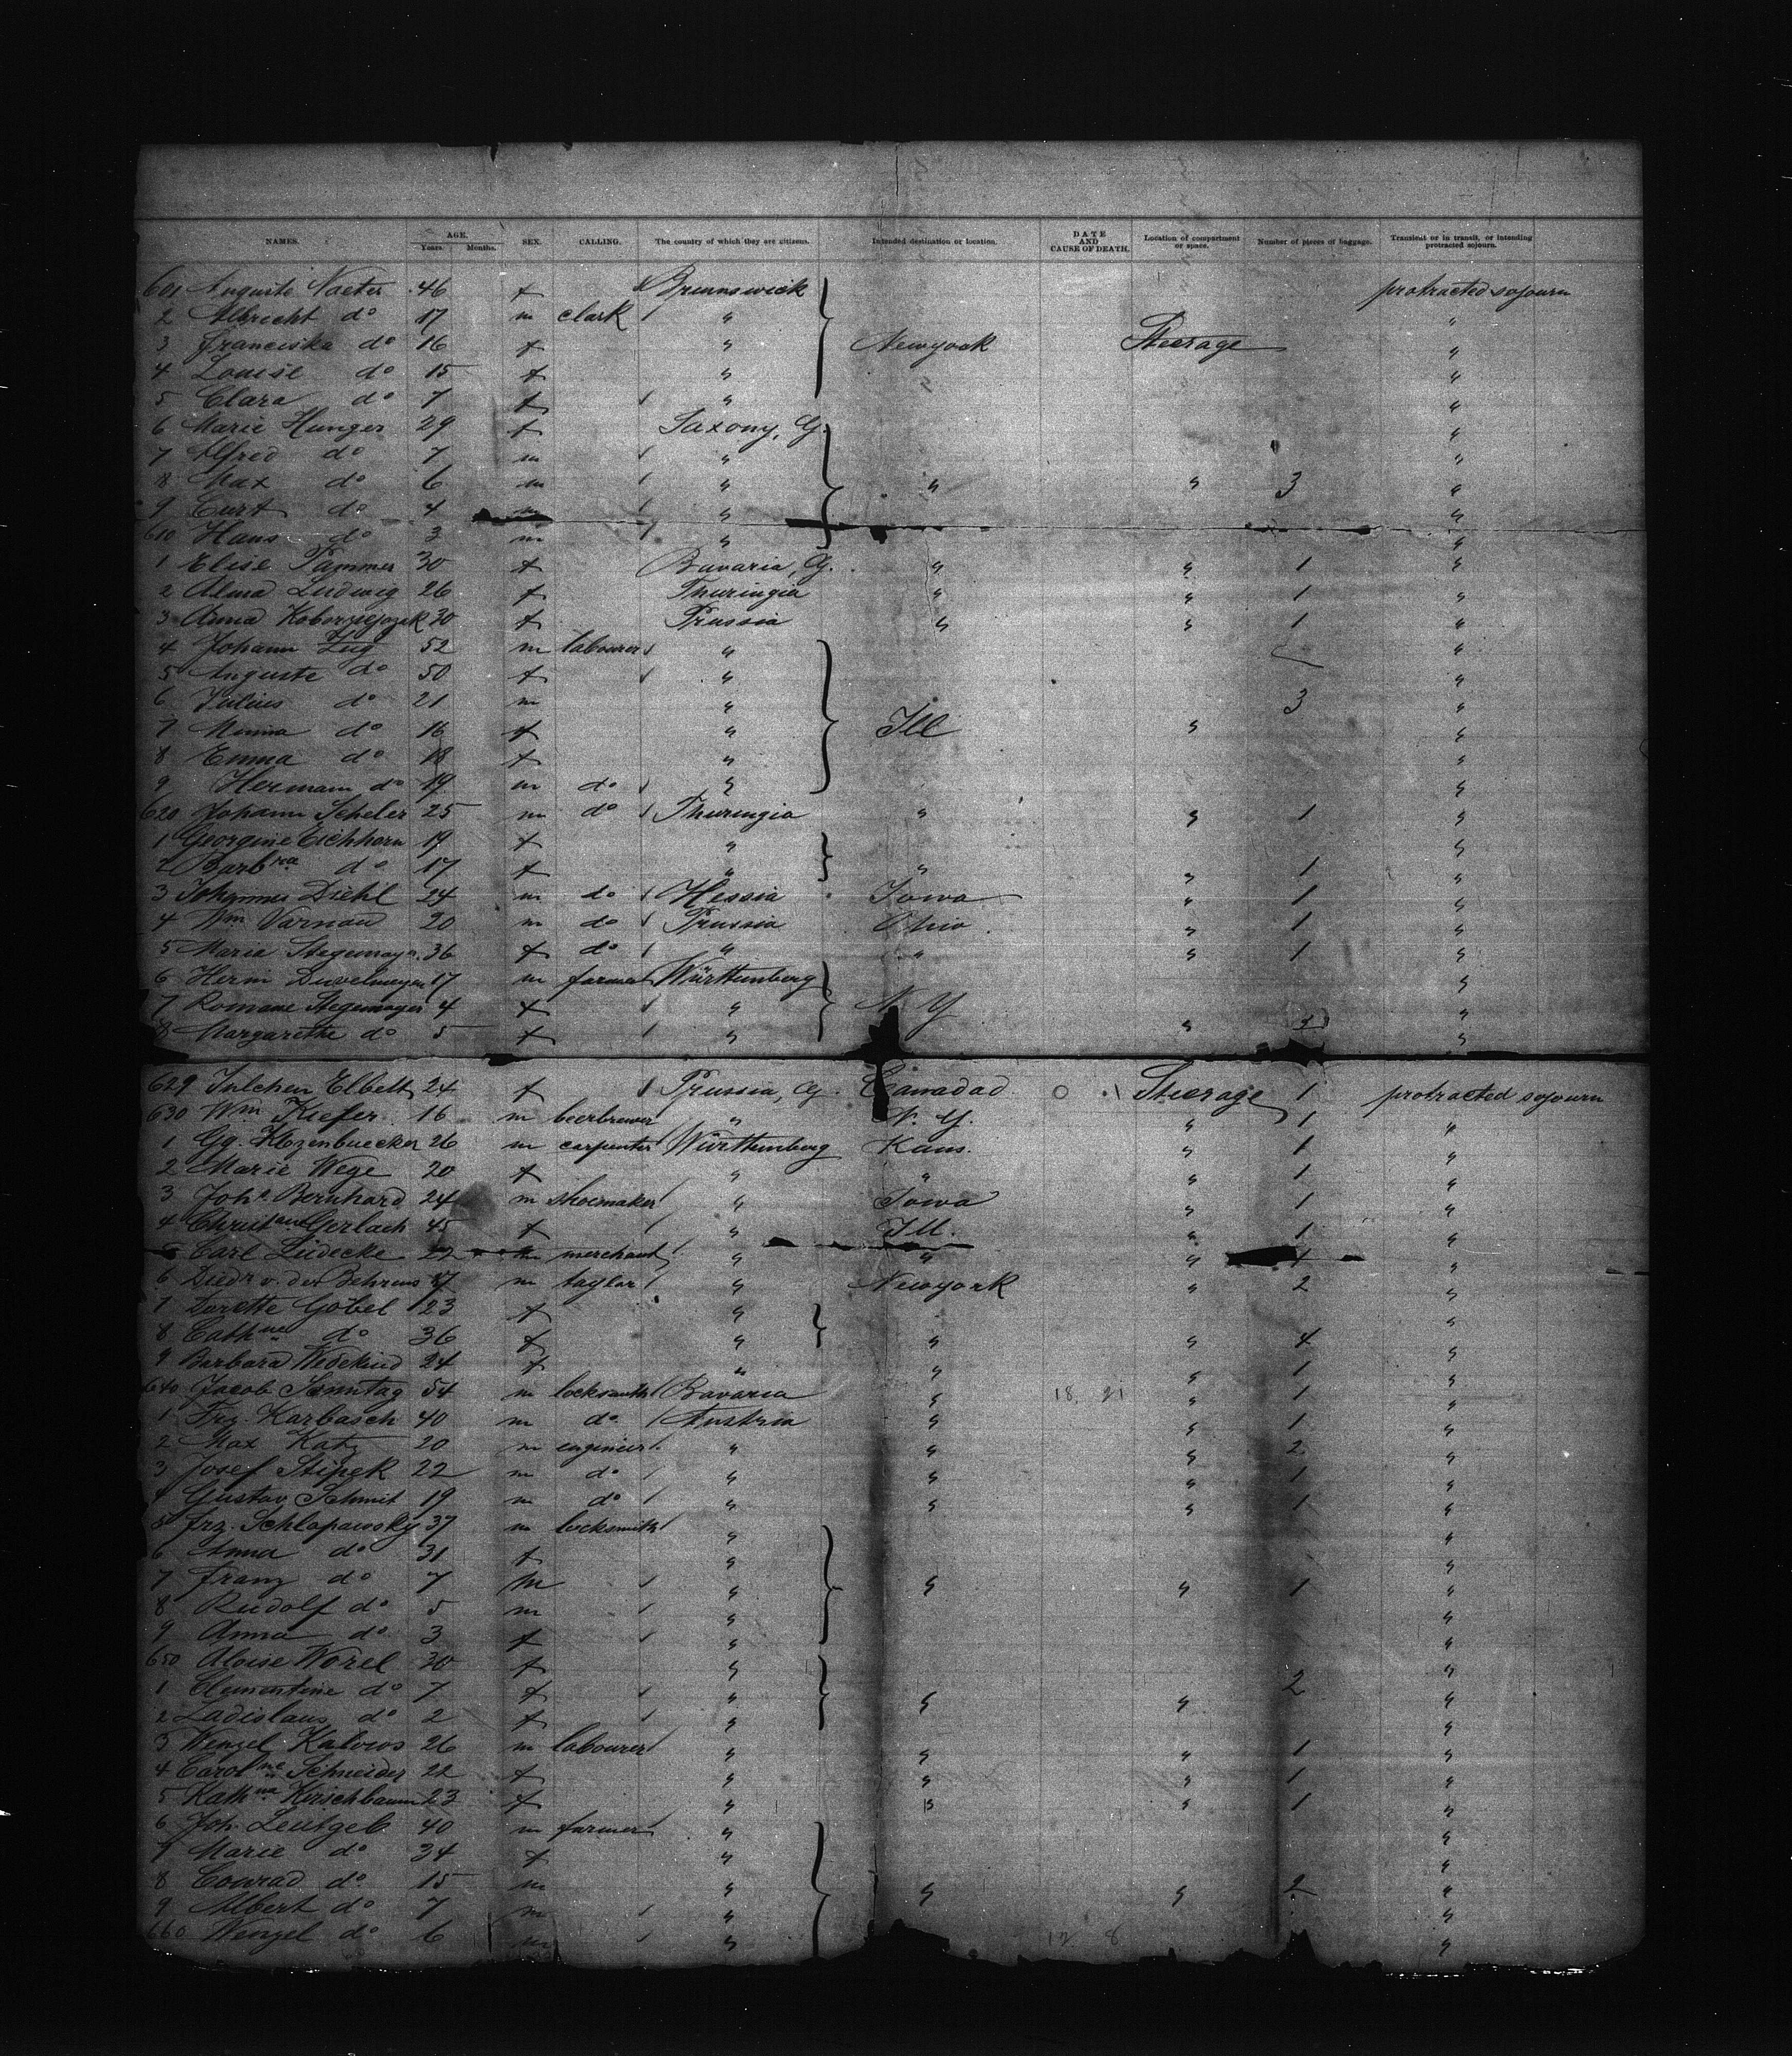 NAMES. AGE. Years. Months. SEX. CALLING. The country of which they are citizens. Intended destination or location. DATE AND CAUSE OF DEATH. Location of compartment or space. Number of pieces of baggage. Transient or in transit, or intending protracted sojourn.
601 Auguste Naeter 46 f Brunswick protracted sojourn
2 Albrecht do 17 m clark " "
3 Franciska do 16 f " Newyork Steerage "
4 Louise do 15 f " "
5 Clara do 7 f " "
6 Marie Hunger 29 f Saxony, G. "
7 Alfred do 7 m " "
8 Max do 6 m " " " 3 "
9 Curt do 4 m " "
610 Hans do 3 m " "
1 Elise Pammer 30 f Bavaria, G. " " 1 "
2 Alma Ludwig 26 f Thuringia " " 1 "
3 Anna 30 f Prussia " " 1 "
4 Johann Zug 52 m labourer " "
5 Auguste do 50 f " "
6 Julius do 21 m " 3 "
7 Minna do 16 f " Ill " "
8 Emma do 18 f " "
9 Hermann do 19 m do " "
620 Johann Scheler 25 m do Thuringia " " 1 "
1 Georgine Eichhorn 19 f " "
2 Barbra do 17 f " " " 1 "
3 Johannes Diehl 24 m do Hessia Iowa " 1 "
4 Wm Varnau 20 m do Prussia Ohio " 1 "
5 Marie Stegemayr. 36 f do " " " 1 "
6 Herm 17 m farmer Württemberg "
7 Romane Stegemayer 4 f " N. Y "
8 Margarethe do 5 f " " 3 "
629 Julchen Elbelt 24 f Prussia, G. Canadad Steerage 1 protracted sojourn
630 Wm Kiefer 16 m beerbrewer " N. Y. " 1 "
1 Gg. 26 m carpenter Württemberg Kans. " 1 "
2 Marie Wege 20 f " " " 1 "
3 Johs Bernhard 24 m shoemaker " Iowa " 1 "
4 Christane Gerlach 45 f " Ill. " 1 "
5 Carl Lüdecke 22 m merchant " " " 1 "
6 Diedr v. der Behrens 17 m taylor " Newyork " 2 "
7 Dorette Göbel 23 f " "
8 Cathne do 36 f " " " 4 "
9 Barbara Wedekind 24 f " " " 1 "
640 Jacob Sonntag 54 m locksmith Bavaria " " 1 "
1 Frz. Karbasch 40 m do. Austria " " 1 "
2 Max Katz 20 m engineer " " " 2 "
3 Josef Stipek 22 m do " " " 1 "
4 Gustav Schmit 19 m do " " " 1 "
5 Frz. Schlapawsky 37 m locksmith " "
6 Anna do 31 f " "
7 Franz do 7 m " " " 1 "
8 Rudolf do 5 m " "
9 Anna do 3 f " "
650 Aloise Worel 30 f " "
1 Clementine do 7 f " " " 2 "
2 Ladislaus do 2 f " "
3 Wenzel 26 m labourer " " " 1 "
4 Carolne Schneider 22 f " " " 1 "
5 Kathna Kirschbaum 23 f " " " 1 "
6 Joh. Leitgeb 40 m farmer " "
7 Marie do 34 f " "
8 Conrad do 15 m " " " 2 "
9 Albert do 7 m " "
660 Wenzel do 6 m " "